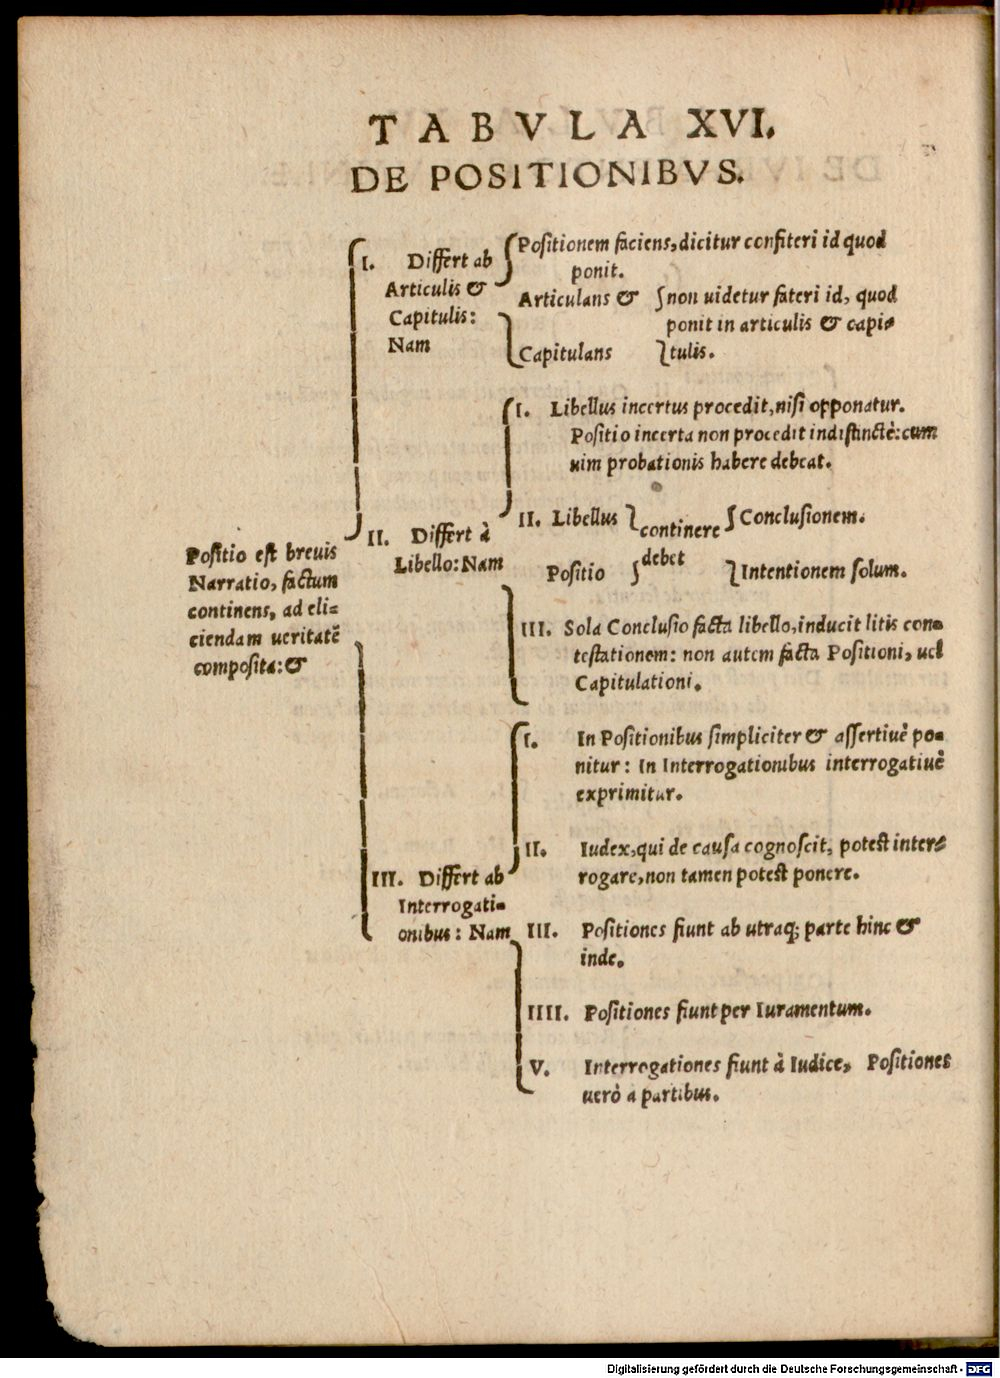 TABVLA XVI.
DE POSITIONIBVS.
Positio est breuis
Narratio, factum
continens, ad eli=
ciendam ueritatē
composita: &
I. Differt ab
Articulis &
Capitulis:
Nam
Positionem faciens, dicitur confiteri id quod
ponit.
Articulans &
Capitulans
non uidetur fateri id, quod
ponit in articulis & capi=
tulis.
II. Differt à
Libello: Nam
I. Libellus incertus procedit, nisi opponatur.
Positio incerta non procedit indistinctè: cum
uim probationis habere debeat.
II. Libellus
Positio
continere
debet
Conclusionem.
Intentionem solum.
III. Sola Conclusio facta libello, inducit litis con=
testationem: non autem facta Positioni, uel
Capitulationi.
III. Differt ab
Interrogati=
onibus: Nam
I. In Positionibus simpliciter & assertiuè po=
nitur: In Interrogationibus interrogatiuè
exprimitur.
II. Iudex, qui de causa cognoscit, potest inter=
rogare, non tamen potest ponere.
III. Positiones fiunt ab utraq; parte hinc &
inde.
IIII. Positiones fiunt per Iuramentum.
V. Interrogationes fiunt à Iudice, Positiones
uerò a partibus.
Digitalisierung gefördert durch die Deutsche Forschungsgemeinschaft - DFG